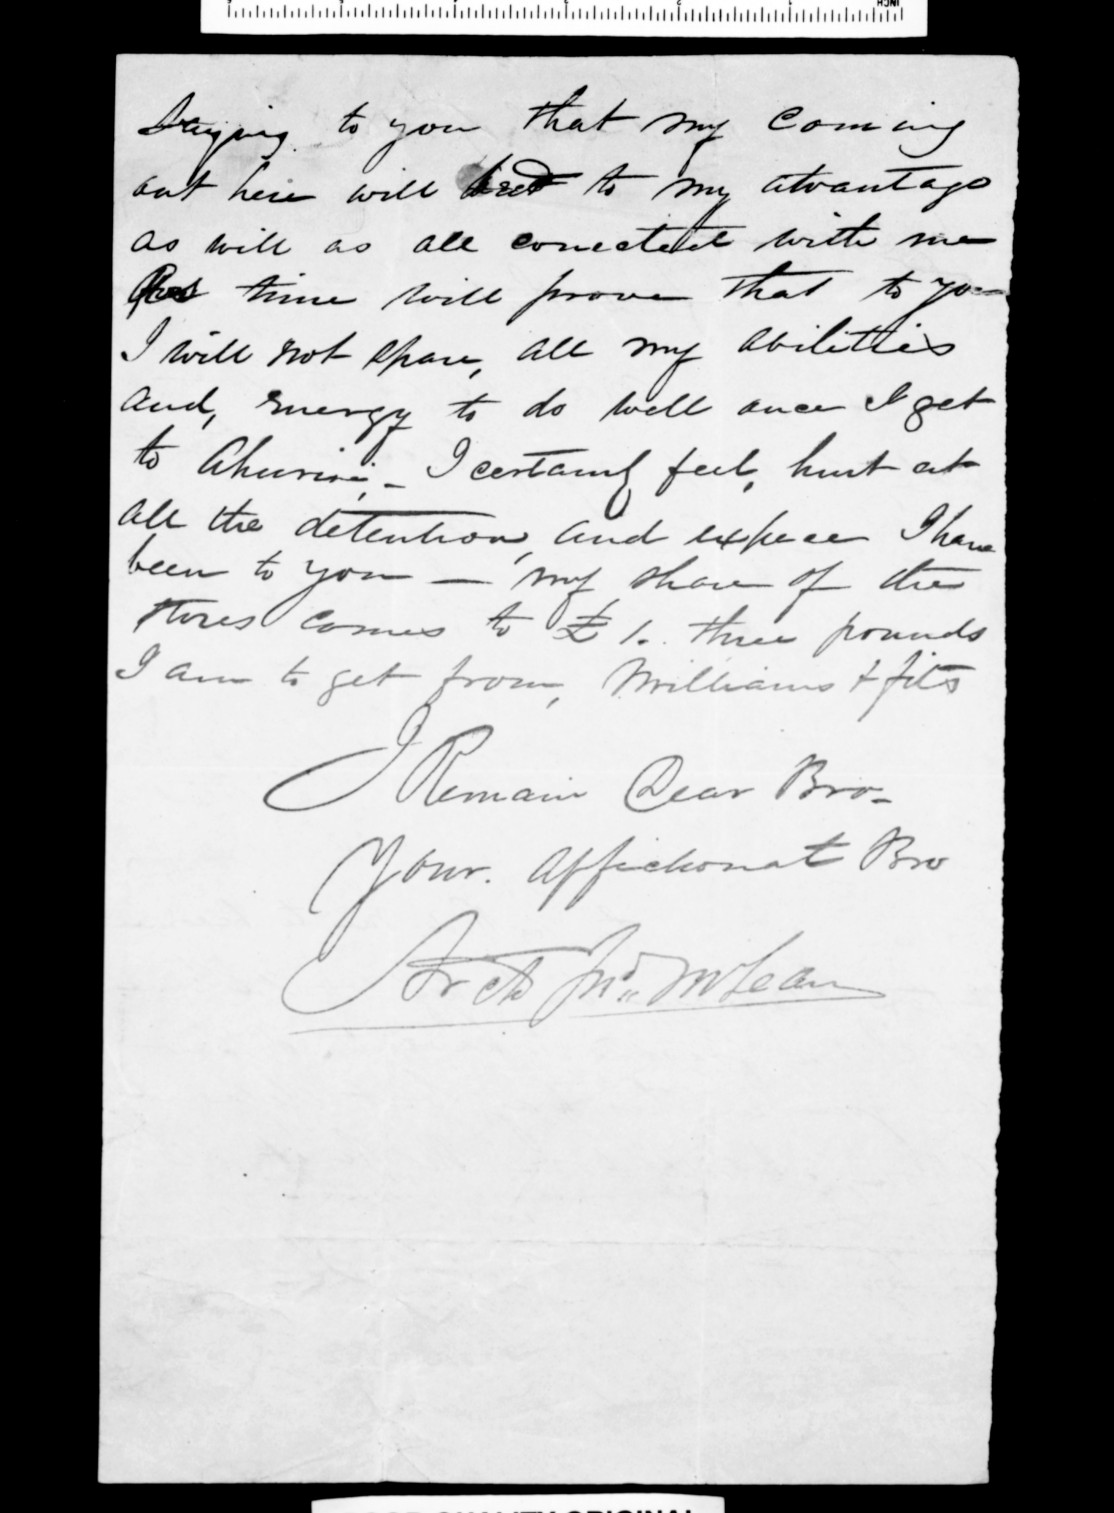 INCH
Saying to you that my coming
out here will to my atvantage
as will as all conectted with me
time will prove that to you
I will not spare, all my abilitties
and, energy to do well once I get
to Ahuriri, - I certainly feel, hurt at
all the detention, and expece I have
been to you — my share of the
stores comes to £1. three pounds
I am to get from, Williams & fits
I Remain Dear Bro-
Your. affectionat Bro
Archd Jno McLean
POOR QUALITY ORIGINAL